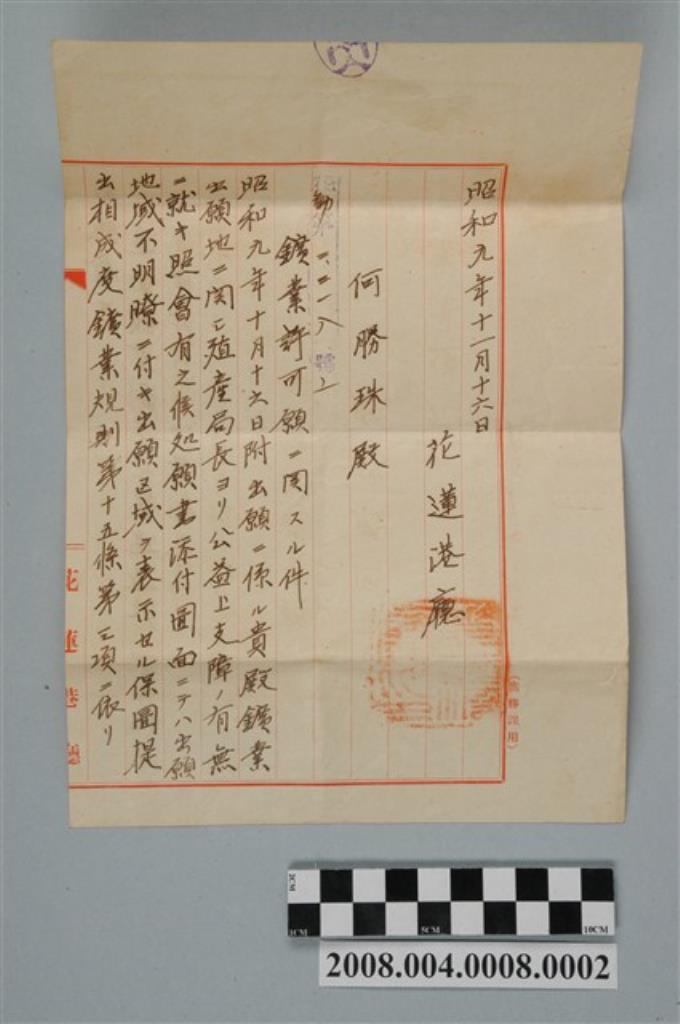 昭和九年十一月十六日
花蓮港廳
何勝珠殿
勸 一二一八號ノ一
鑛業許可願ニ関スル件
昭和九年十月十六日附出願ニ係ル貴殿鑛業
出願地ニ関シ殖産局長ヨリ公益上支障ノ有無
ニ就キ照會有之候処願書添付圖面ニテハ出願
地域不明瞭ニ付キ出願区域ヲ表示セル保圖提
出相成度鑛業規則第十五條第三項ニ依リ
花蓮港廳
2CM
1CM
5CM
10CM
2008.004.0008.0002